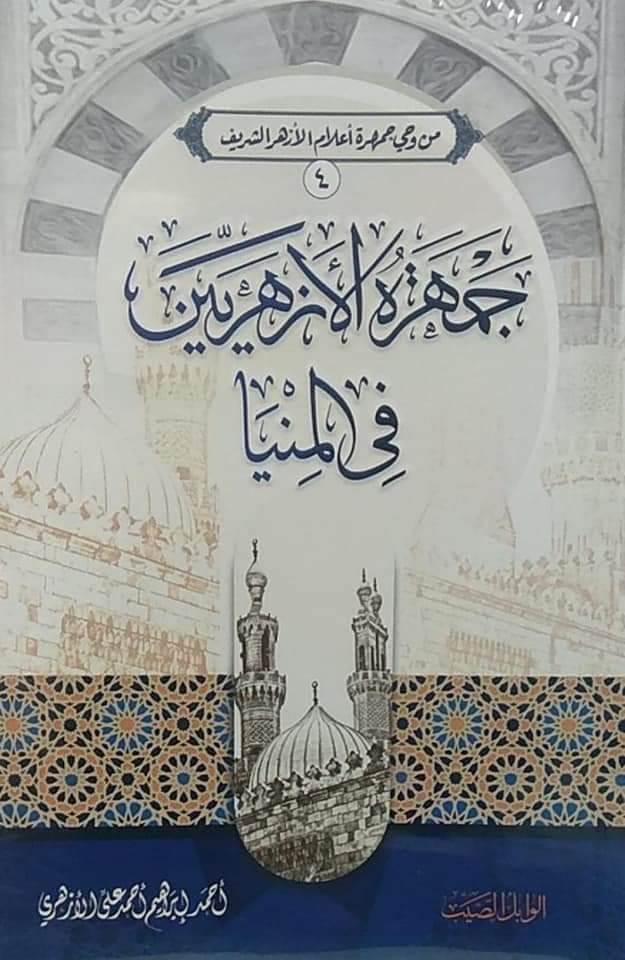 من وحي جمهرة أعلام الأزهر الشريف
٤
جَمْهَرَةُ الأَزهَرِيّينَ
فِي المِنْيَا
أحمد إبراهيم أحمد علي الأزهري
الوابل الصيّب